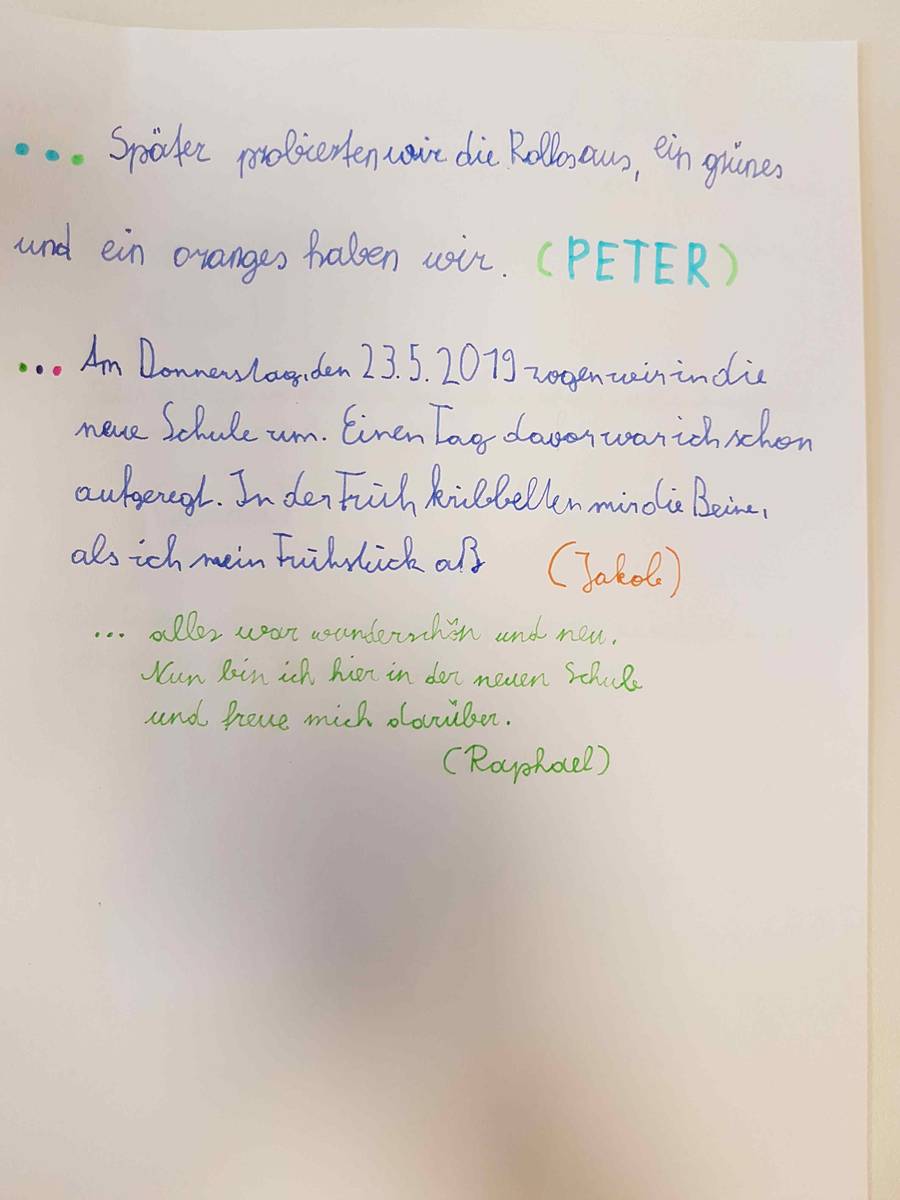 ... Später probierten wir die Rollos aus, ein grünes
und ein oranges haben wir. (PETER)
... Am Donnerstag, den 23.5.2019 zogen wir in die
neue Schule um. Einen Tag davor war ich schon
aufgeregt. In der Früh kribbelten mir die Beine,
als ich mein Frühstück aß (Jakob)
... alles war wunderschön und neu.
Nun bin ich hier in der neuen Schule
und freue mich darüber.
(Raphael)